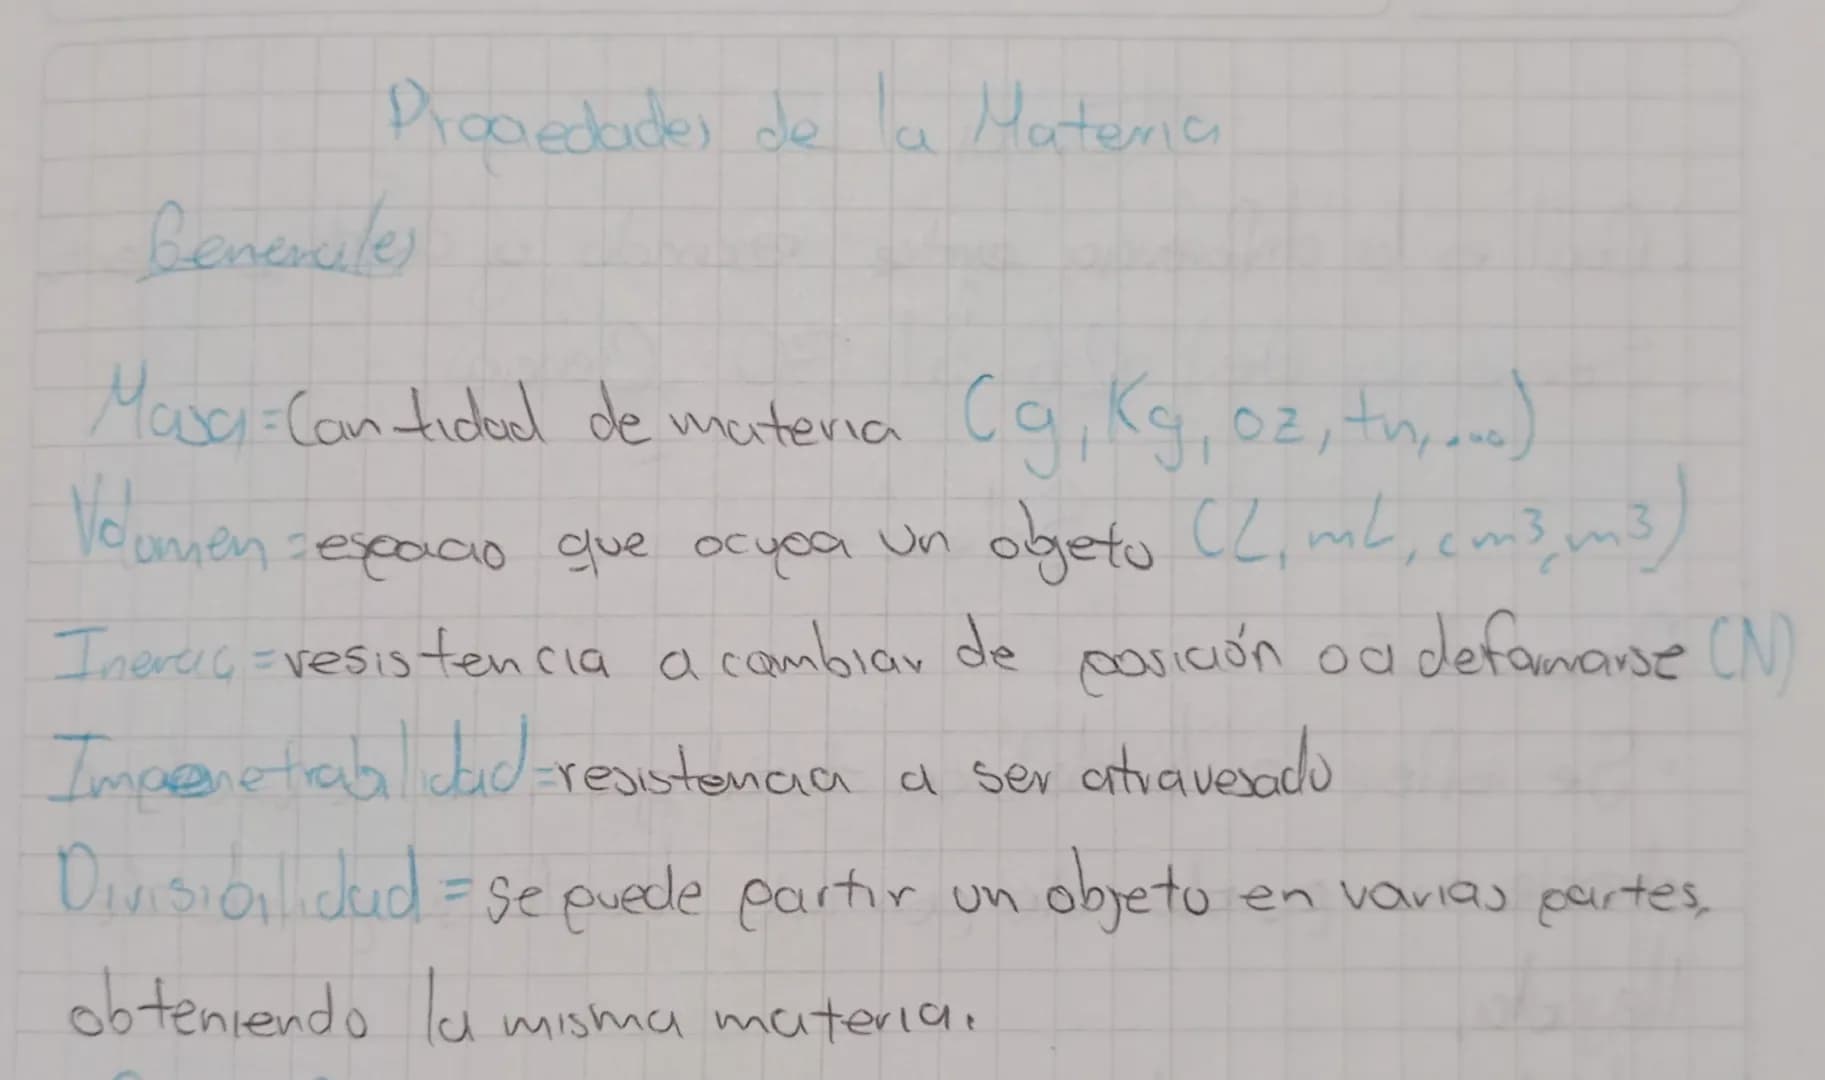 Propiedades de la Materia
Generales
Masa = Cantidad de materia (g, Kg, oz, tn, ...)
Volumen = espacio que ocupa un objeto (L, mL, cm³, m³)
Inercia = resistencia a cambiar de posición o a deformarse (N)
Impenetrabilidad = resistencia a ser atravesado
Divisibilidad = se puede partir un objeto en varias partes,
obteniendo la misma materia.